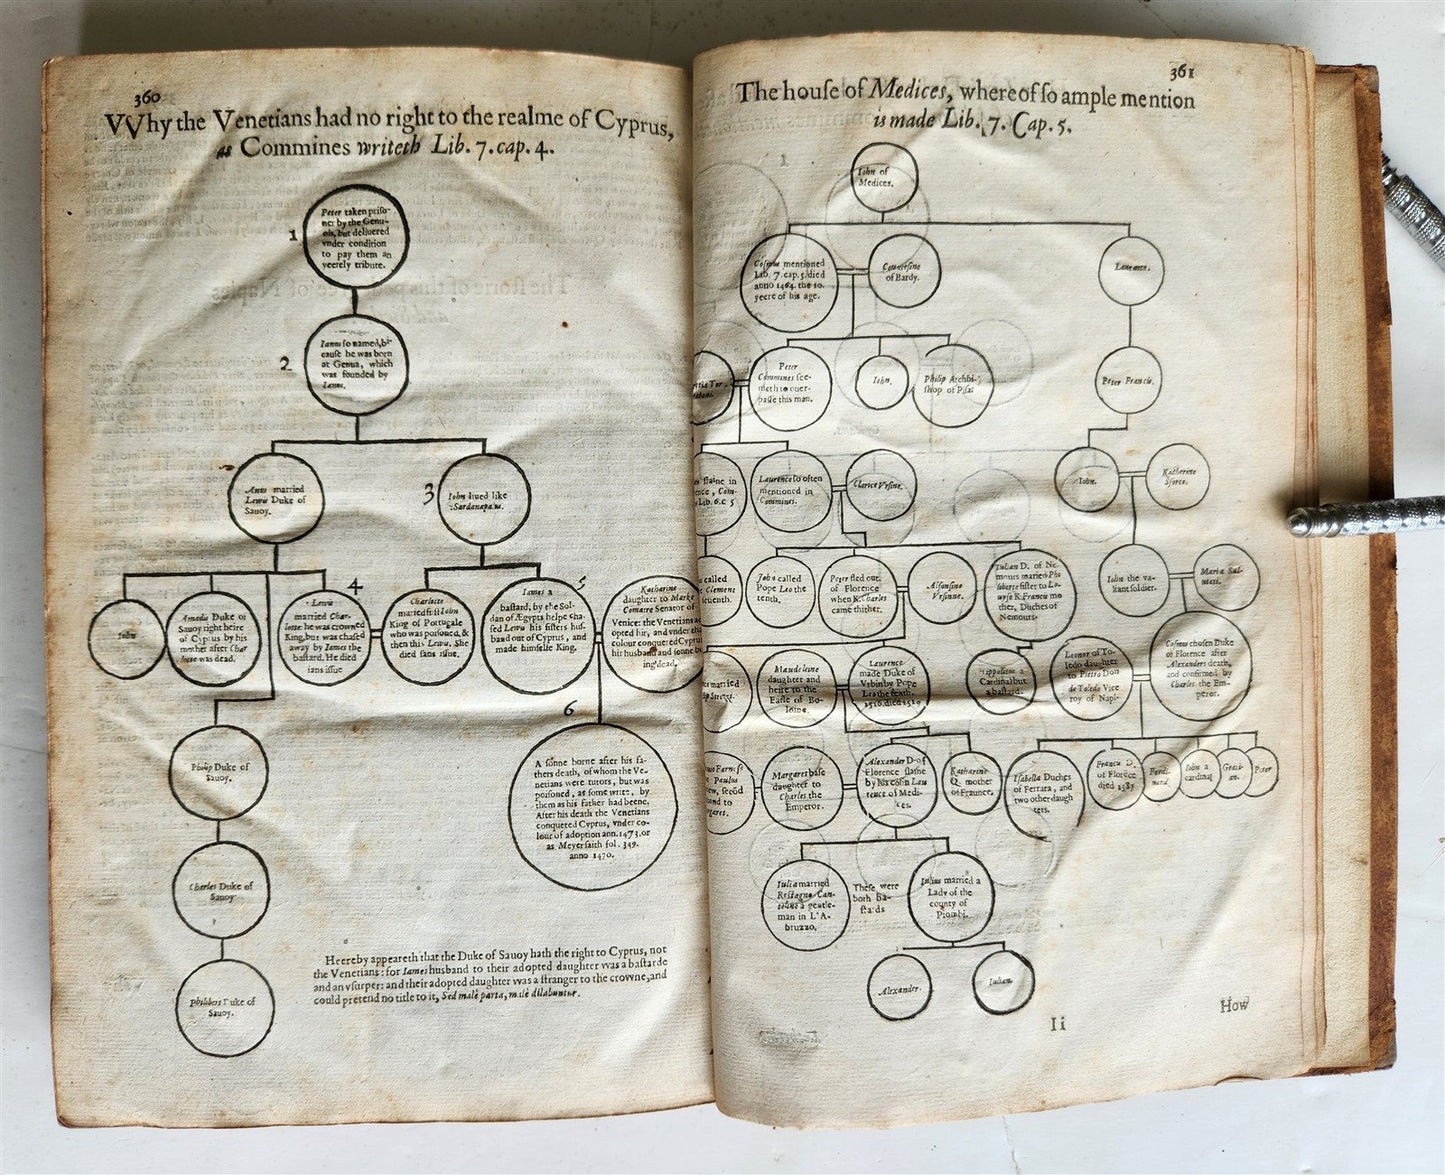 360
VVhy the Venetians had no right to the realme of Cyprus,
as Commines writeth Lib. 7. cap. 4.
1
Peter taken priſo-
ner by the Genu-
ois, but deliuered
vnder condition
to pay them an
yeerely tribute.
2
Ianus ſo named, be-
cauſe he was born
at Genua, which
was founded by
Ianus.
Anne married
Lewis Duke of
Sauoy.
3
Iohn liued like
Sardanapalus.
Iohn
Amadis Duke of
Sauoy right heire
of Cyprus by his
mother after Char
lotte was dead.
4
Lewis
married Char-
lotte: he was crowned
King, but was chaſed
away by Iames the
baſtard. He died
ſans iſſue
Charlotte
married firſt Iohn
King of Portugale
who was poiſoned, &
then this Lewis. She
died ſans iſſue.
5
Iames a
baſtard, by the Sol-
dan of Ægypts helpe cha-
ſed Lewis his ſiſters huſ-
band out of Cyprus, and
made himſelfe King.
Katharine
daughter to Marke
Cornaire Senator of
Venice: the Venetians ad
opted hir, and vnder th
colour conquered Cyprus
hir husband and ſonne be
ing dead.
6
A ſonne borne after his fa-
thers death, of whom the Ve-
netians were tutors, but was
poiſoned, as ſome write, by
them as his father had beene.
After his death the Venetians
conquered Cyprus, vnder co-
lour of adoption ann. 1473. or
as Meyer ſaith fol. 349.
anno 1470.
Philip Duke of
Sauoy.
Charles Duke of
Sauoy
Philibert Duke of
Sauoy.
Heereby appeareth that the Duke of Sauoy hath the right to Cyprus, not
the Venetians: for Iames husband to their adopted daughter was a baſtarde
and an vſurper: and their adopted daughter was a ſtranger to the crowne, and
could pretend no title to it, Sed malè parta, malè dilabuntur.
361
The houſe of Medices, whereof ſo ample mention
is made Lib. 7. Cap. 5.
Iohn of
Medices.
Coſmus mentioned
Lib. 7. cap. 5. died
anno 1464. the 10.
yeere of his age.
of Bardy.
Laurence.
Peter
Commines ſee-
meth to ouer-
paſſe this man.
Iohn.
Philip Archbi-
ſhop of Piſa:
Peter Francis.
ſlaine in
Lib. 6. c. 5
Laurence ſo often
mentioned in
Commines.
Clarice Vrſine.
Iohn.
Katharine
Sforce.
called
Clement
ſeuenth.
Iohn called
Pope Leo the
tenth.
Peter fled out
of Florence
when K. Charles
came thither.
Alfonſine
Vrſinne.
Iulian D. of Ne-
mours maried Phi
liberte ſiſter to Lo-
uyſe K. Francis mo
ther, Ducheſ of
Nemours.
Iohn the va-
liant ſoldier.
Maria Sal-
uiati.
married
Maudeleine
daughter and
heire to the
Earle of Bo-
loine.
Laurence
made Duke of
Vrbin by Pope
Leo the tenth.
1516. died 1519
Hippolitus a
Cardinal but
a baſtard.
Leonor of To-
ledo daughter
to Pietro Don
de Toledo Vice
roy of Napl.
Coſmus choſen Duke
of Florence after
Alexanders death,
and confirmed by
Charles the Em-
peror.
Margaret baſe
daughter to
Charles the
Emperor.
Alexander D. of
Florence ſlaine
by his coſin Lau
rence of Medi-
ces.
Katharine
Q. mother
of Fraunce.
Iſabella Duches
of Ferrara, and
two other daugh
ters.
Francis D.
of Florēce
died 1587
Ferdi-
nand
Iohn a
cardinal
Peter
Iulia married
a gentle-
man in L'A-
bruzzo.
Theſe were
both ba-
ſtards
Iulius married a
Lady of the
county of
Piombi.
Alexander.
Iulian.
Ii
How